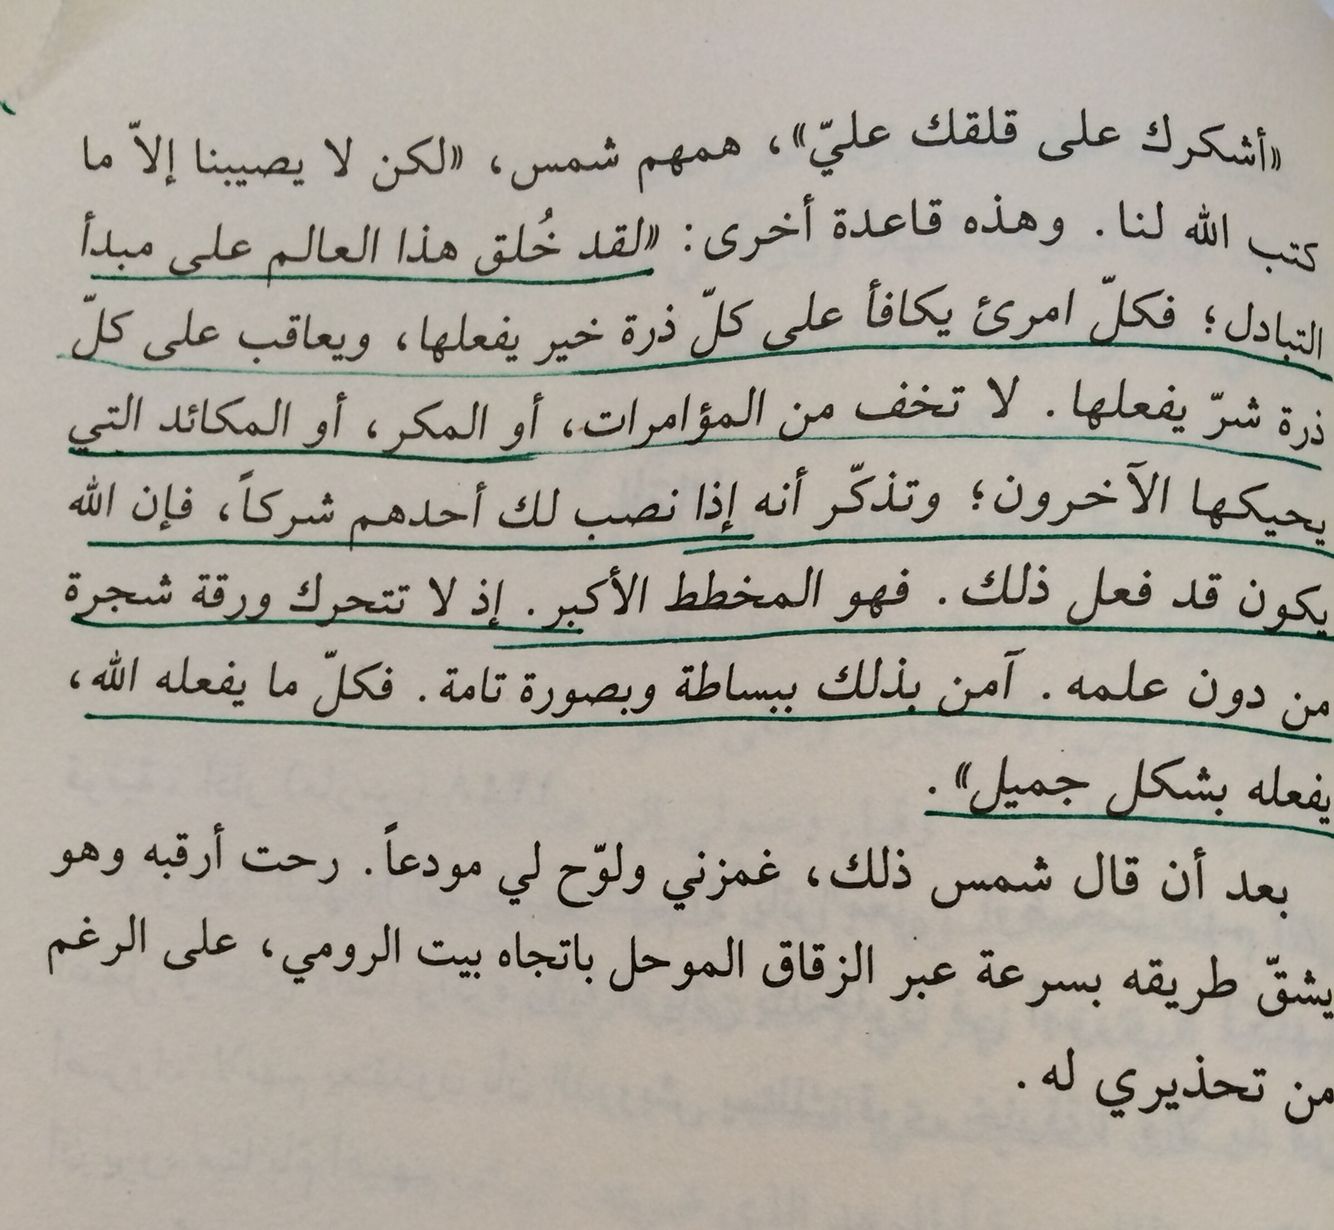 «أشكرك على قلقك عليّ»، همهم شمس، «لكن لا يصيبنا إلاّ ما
كتب الله لنا. وهذه قاعدة أخرى: «لقد خُلق هذا العالم على مبدأ
التبادل؛ فكلّ امرئ يكافأ على كلّ ذرة خير يفعلها، ويعاقب على كلّ
ذرة شرّ يفعلها. لا تخف من المؤامرات، أو المكر، أو المكائد التي
يحيكها الآخرون؛ وتذكّر أنه إذا نصب لك أحدهم شركاً، فإن الله
يكون قد فعل ذلك. فهو المخطط الأكبر. إذ لا تتحرك ورقة شجرة
من دون علمه. آمن بذلك ببساطة وبصورة تامة. فكلّ ما يفعله الله،
يفعله بشكل جميل».
بعد أن قال شمس ذلك، غمزني ولوّح لي مودعاً. رحت أرقبه وهو
يشقّ طريقه بسرعة عبر الزقاق الموحل باتجاه بيت الرومي، على الرغم
من تحذيري له.